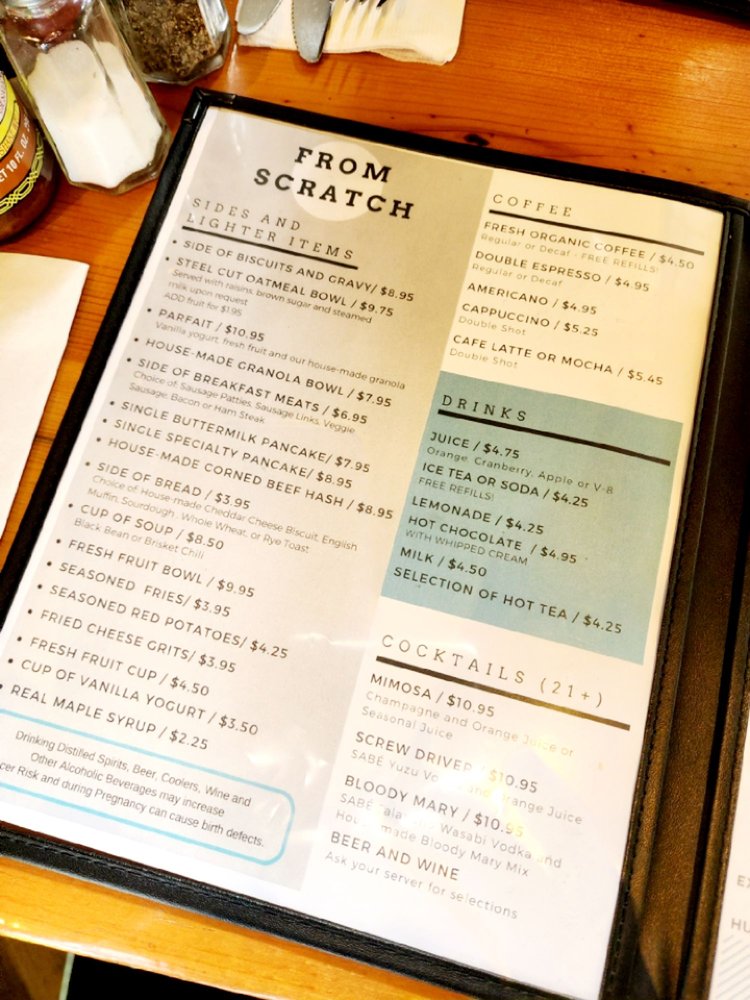 FROM
SCRATCH
SIDES AND
LIGHTER ITEMS
• SIDE OF BISCUITS AND GRAVY/ $8.95
• STEEL CUT OATMEAL BOWL / $9.75
Served with raisins, brown sugar and steamed
milk upon request
ADD fruit for $1.95
• PARFAIT / $10.95
Vanilla yogurt, fresh fruit and our house-made granola
• HOUSE-MADE GRANOLA BOWL / $7.95
• SIDE OF BREAKFAST MEATS / $6.95
Choice of Sausage Patties, Sausage Links, Veggie
Sausage, Bacon or Ham Steak
• SINGLE BUTTERMILK PANCAKE/ $7.95
• SINGLE SPECIALTY PANCAKE/ $8.95
• HOUSE-MADE CORNED BEEF HASH / $8.95
• SIDE OF BREAD / $3.95
Choice of House-made Cheddar Cheese Biscuit, English
Muffin, Sourdough, Whole Wheat, or Rye Toast
• CUP OF SOUP / $8.50
Black Bean or Brisket Chili
• FRESH FRUIT BOWL / $9.95
• SEASONED FRIES/ $3.95
• SEASONED RED POTATOES/ $4.25
• FRIED CHEESE GRITS/ $3.95
• FRESH FRUIT CUP / $4.50
• CUP OF VANILLA YOGURT / $3.50
• REAL MAPLE SYRUP / $2.25
Drinking Distilled Spirits, Beer, Coolers, Wine and
Other Alcoholic Beverages may increase
cer Risk and during Pregnancy can cause birth defects.
COFFEE
FRESH ORGANIC COFFEE / $4.50
Regular or Decaf - FREE REFILLS!
DOUBLE ESPRESSO / $4.95
Regular or Decaf
AMERICANO / $4.95
CAPPUCCINO / $5.25
Double Shot
CAFE LATTE OR MOCHA / $5.45
Double Shot
DRINKS
JUICE / $4.75
Orange, Cranberry, Apple or V-8
ICE TEA OR SODA / $4.25
FREE REFILLS!
LEMONADE / $4.25
HOT CHOCOLATE / $4.95
WITH WHIPPED CREAM
MILK / $4.50
SELECTION OF HOT TEA / $4.25
COCKTAILS (21+)
MIMOSA / $10.95
Champagne and Orange Juice or
Seasonal Juice
SCREW DRIVER / $10.95
SABÉ Yuzu Vodka and Orange Juice
BLOODY MARY / $10.95
SABÉ Wasabi Vodka and
House made Bloody Mary Mix
BEER AND WINE
Ask your server for selections
10 FL. OZ
EX
HU